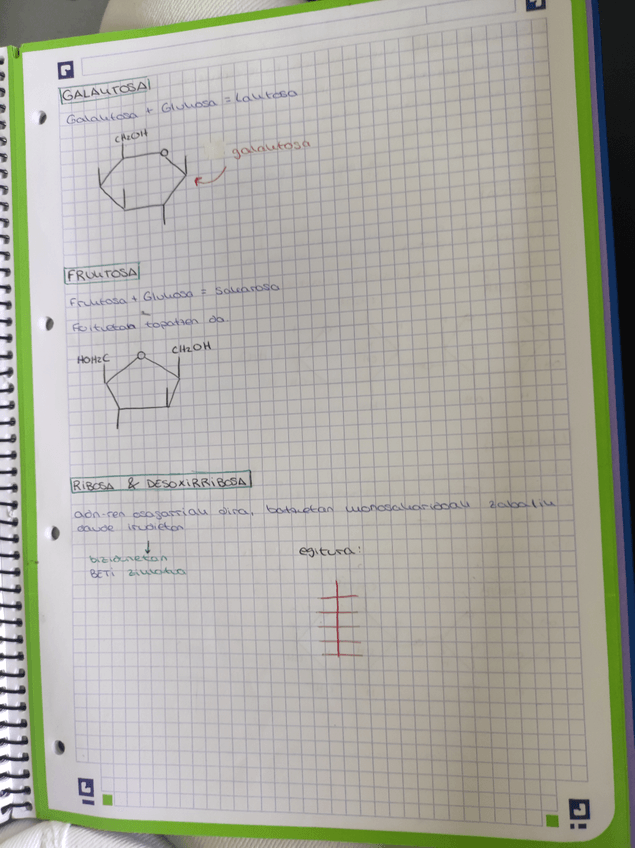 GALAKTOSA
Galaktosa + Glukosa = Laktosa
CH2OH
O
galaktosa
FRUKTOSA
Fruktosa + Glukosa = Sakarosa
Fruituetan topatzen da
HOH2C
O
CH2OH
RIBOSA & DESOXIRRIBOSA
adn-ren osagarriak dira, batzuetan monosakaridoak zabalik
daude irudietan
bizidunetan
BETI zikliko
egitura: